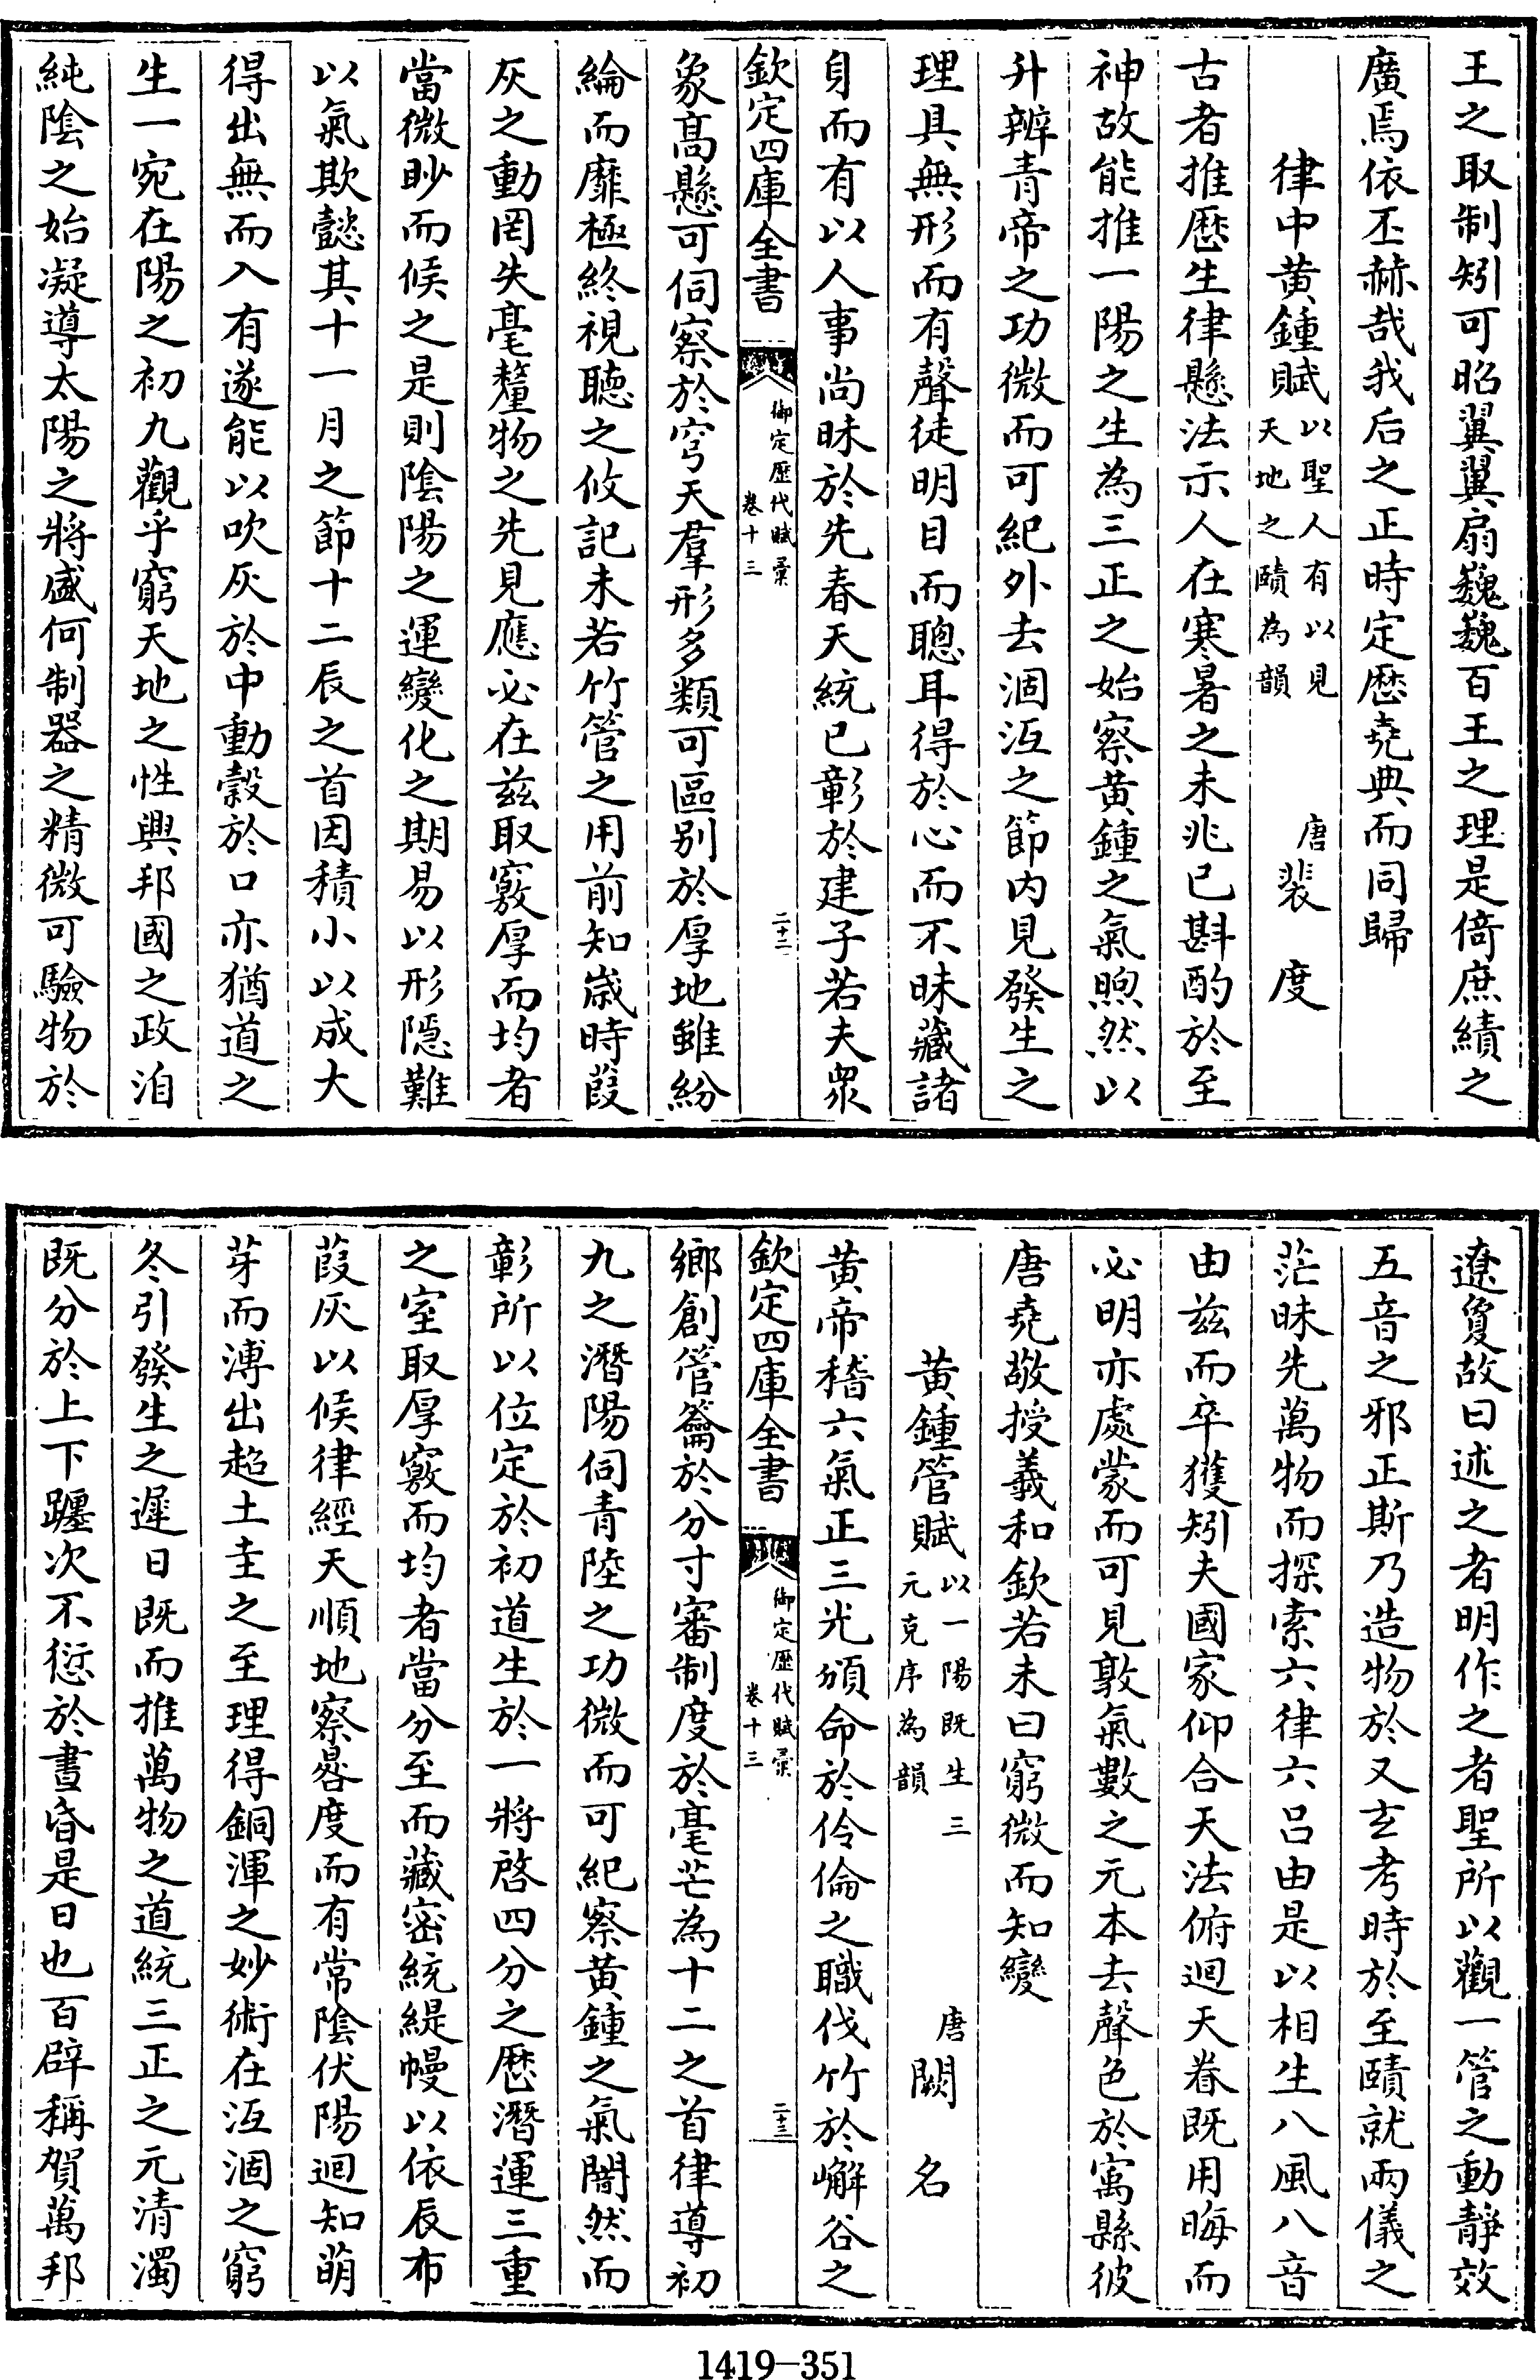 王之取制矧可昭翼翼扇巍巍百王之理是倚庶績之
廣焉依丕赫哉我后之正時定歷堯典而同歸
律中黄鍾賦以聖人有以見天地之賾為韻 唐裴度
古者推歷生律懸法示人在寒暑之未兆已斟酌於至
神故能推一陽之生為三正之始察黄鍾之氣煦然以
升辨青帝之功微而可紀外去涸沍之節内見發生之
理具無形而有聲徒明目而聰耳得於心而不昧藏諸
身而有以人事尚昧於先春天統已彰於建子若夫衆
欽定四庫全書 御定歷代賦彙 卷十三 二十二
象髙懸可伺察於穹天羣形多類可區别於厚地雖紛
綸而靡極終視聽之攸記未若竹管之用前知嵗時葭
灰之動罔失毫釐物之先見應必在兹取竅厚而均者
當微眇而候之是則陰陽之運變化之期易以形隱難
以氣欺懿其十一月之節十二辰之首因積小以成大
得出無而入有遂能以吹灰於中動縠於口亦猶道之
生一宛在陽之初九觀乎窮天地之性興邦國之政洎
純陰之始凝導太陽之將盛何制器之精微可驗物於
遼敻故曰述之者明作之者聖所以觀一管之動靜效
五音之邪正斯乃造物於又玄考時於至賾就兩儀之
茫昧先萬物而探索六律六呂由是以相生八風八音
由兹而卒獲矧夫國家仰合天法俯迴天眷既用晦而
必明亦處蒙而可見敦氣數之元本去聲色於寓縣彼
唐堯敬授羲和欽若未曰窮微而知變
黄鍾管賦以一陽既生三元克序為韻 唐闕名
黄帝稽六氣正三光頒命於伶倫之職伐竹於嶰谷之
欽定四庫全書 御定歷代賦彙 卷十三 二十三
鄉創管籥於分寸審制度於毫芒為十二之首律導初
九之潛陽伺青陸之功微而可紀察黄鍾之氣闇然而
彰所以位定於初道生於一將啓四分之歷潛運三重
之室取厚竅而均者當分至而藏密統緹幔以依辰布
葭灰以候律經天順地察晷度而有常陰伏陽迴知萌
芽而漙出超土圭之至理得銅渾之妙術在沍涸之窮
冬引發生之遲日既而推萬物之道統三正之元清濁
既分於上下躔次不愆於晝昏是日也百辟稱賀萬邦
1419-351